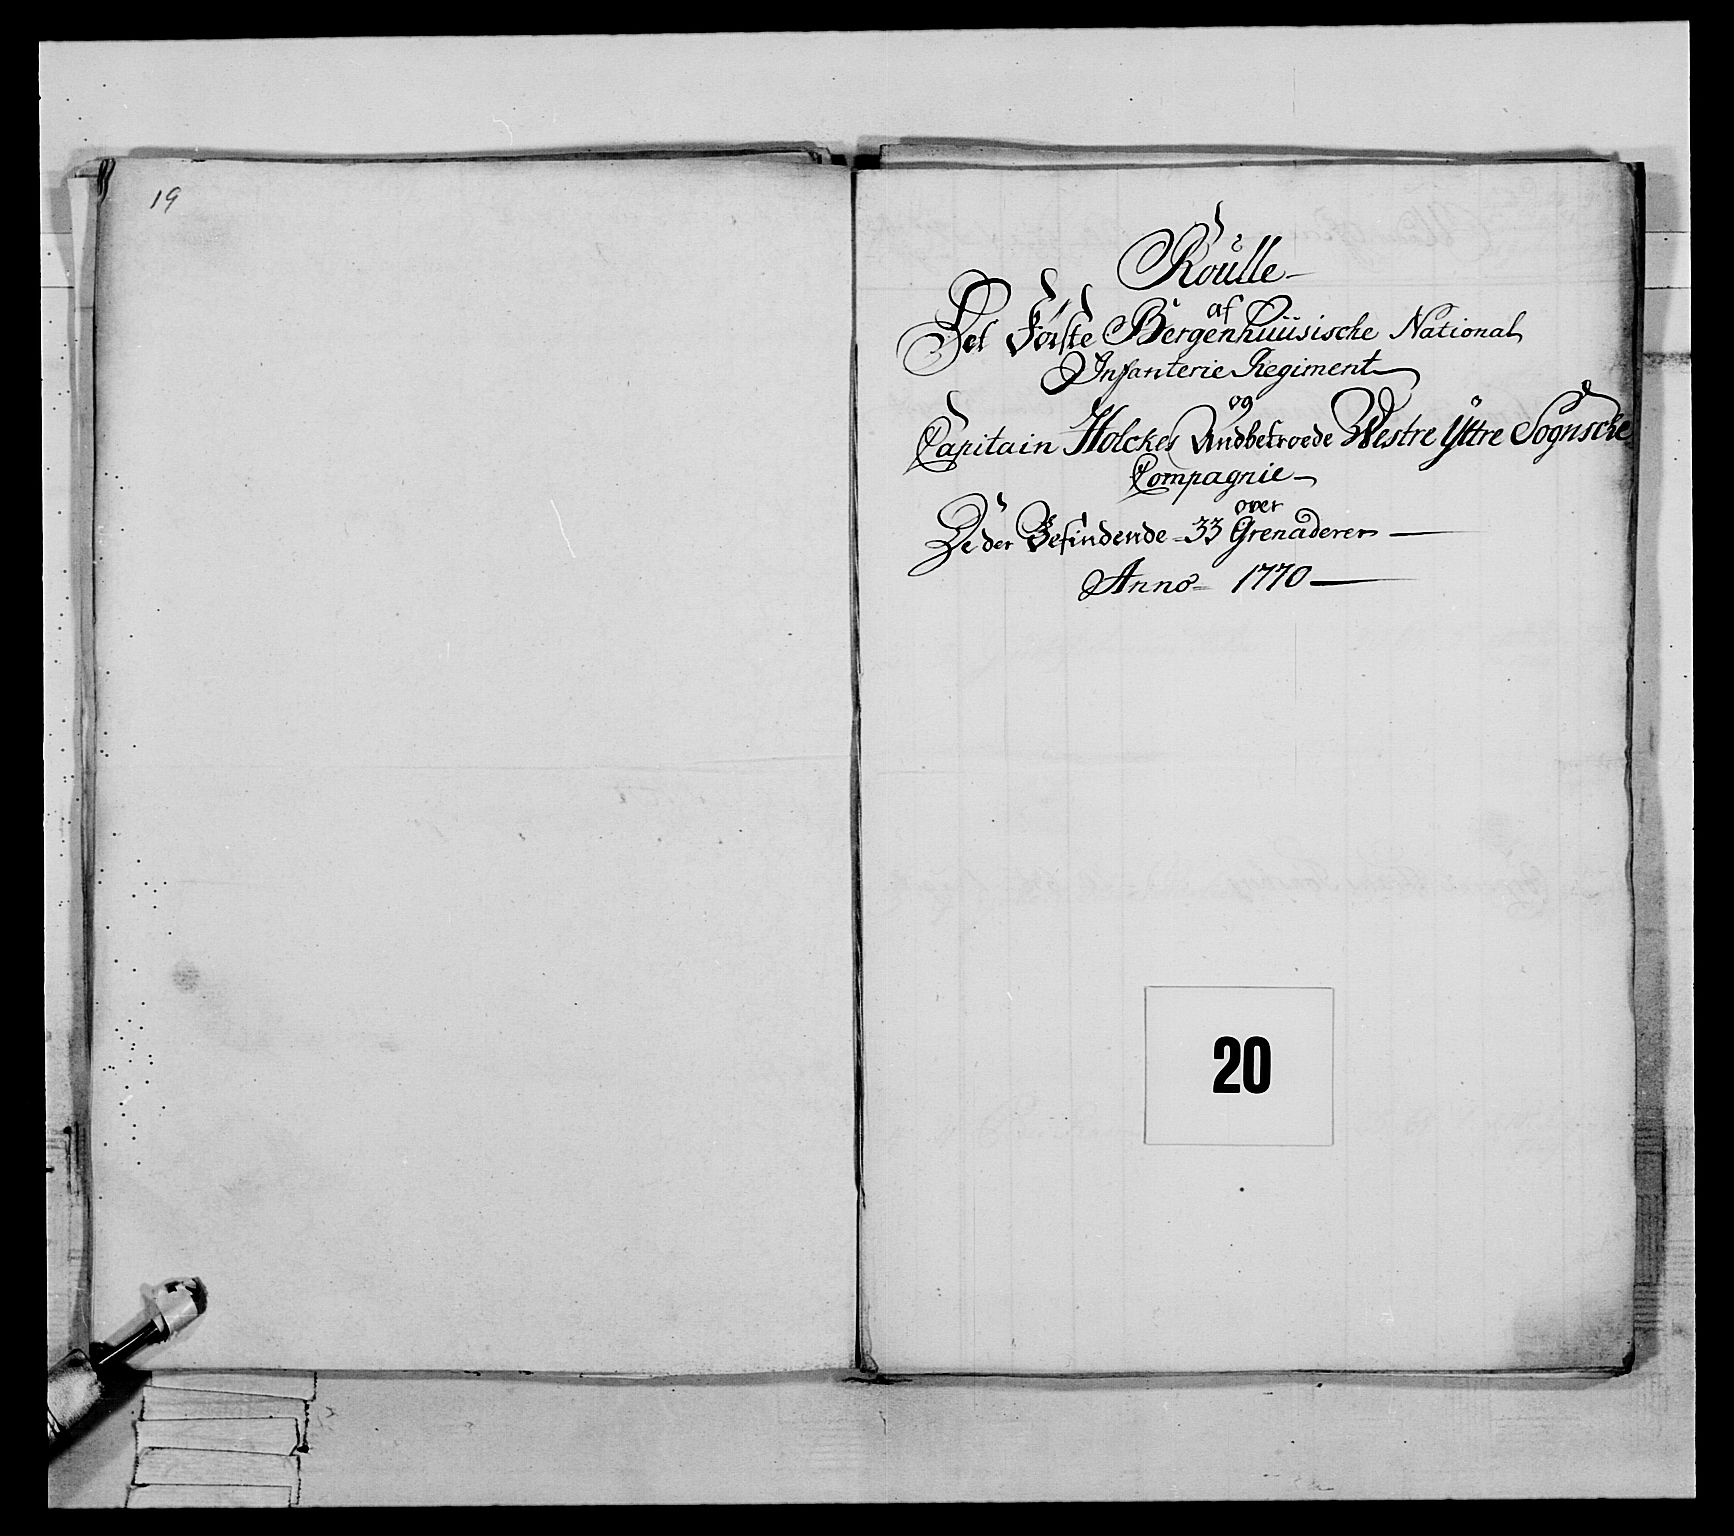 19
Roulle
af
Det Første Bergenhuusische National
Infanterie Regiment
og
Capitain Holckes Andbetroede Westre Yttre Sognsche
Compagnie
over
De der Befindende 33 Grenaderer
Anno 1770
20